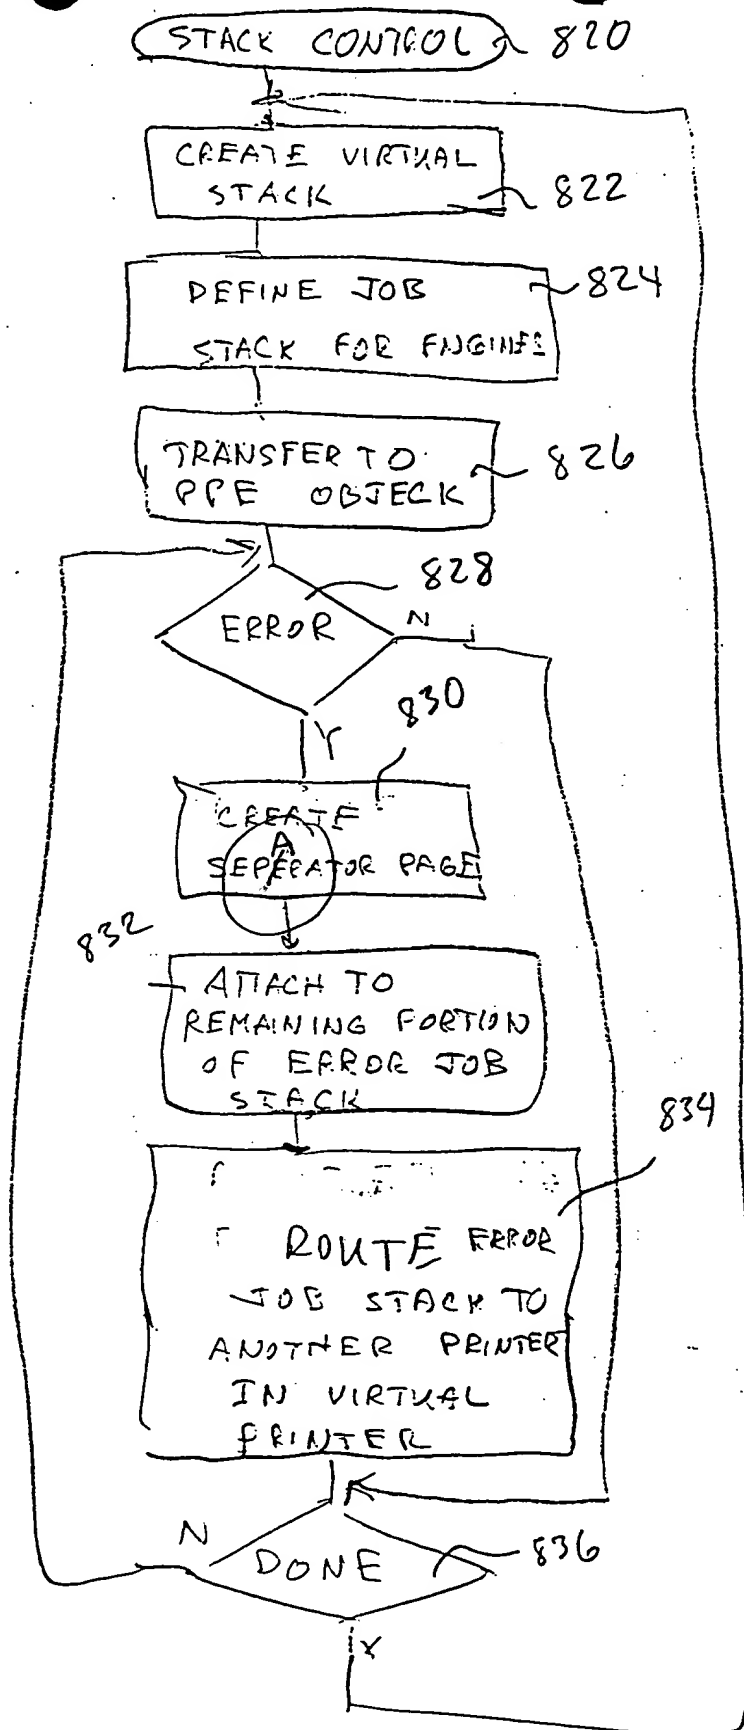 STACK CONTROL 820
CREATE VIRTUAL
STACK 822
DEFINE JOB 824
STACK FOR ENGINES
TRANSFER TO 826
PPE OBJECK
828
ERROR N
830
Y
CREATE
A
SEPERATOR PAGE
832
ATTACH TO
REMAINING PORTION
OF ERROR JOB
STACK
834
ROUTE ERROR
JOB STACK TO
ANOTHER PRINTER
IN VIRTUAL
PRINTER
N
DONE 836
Y